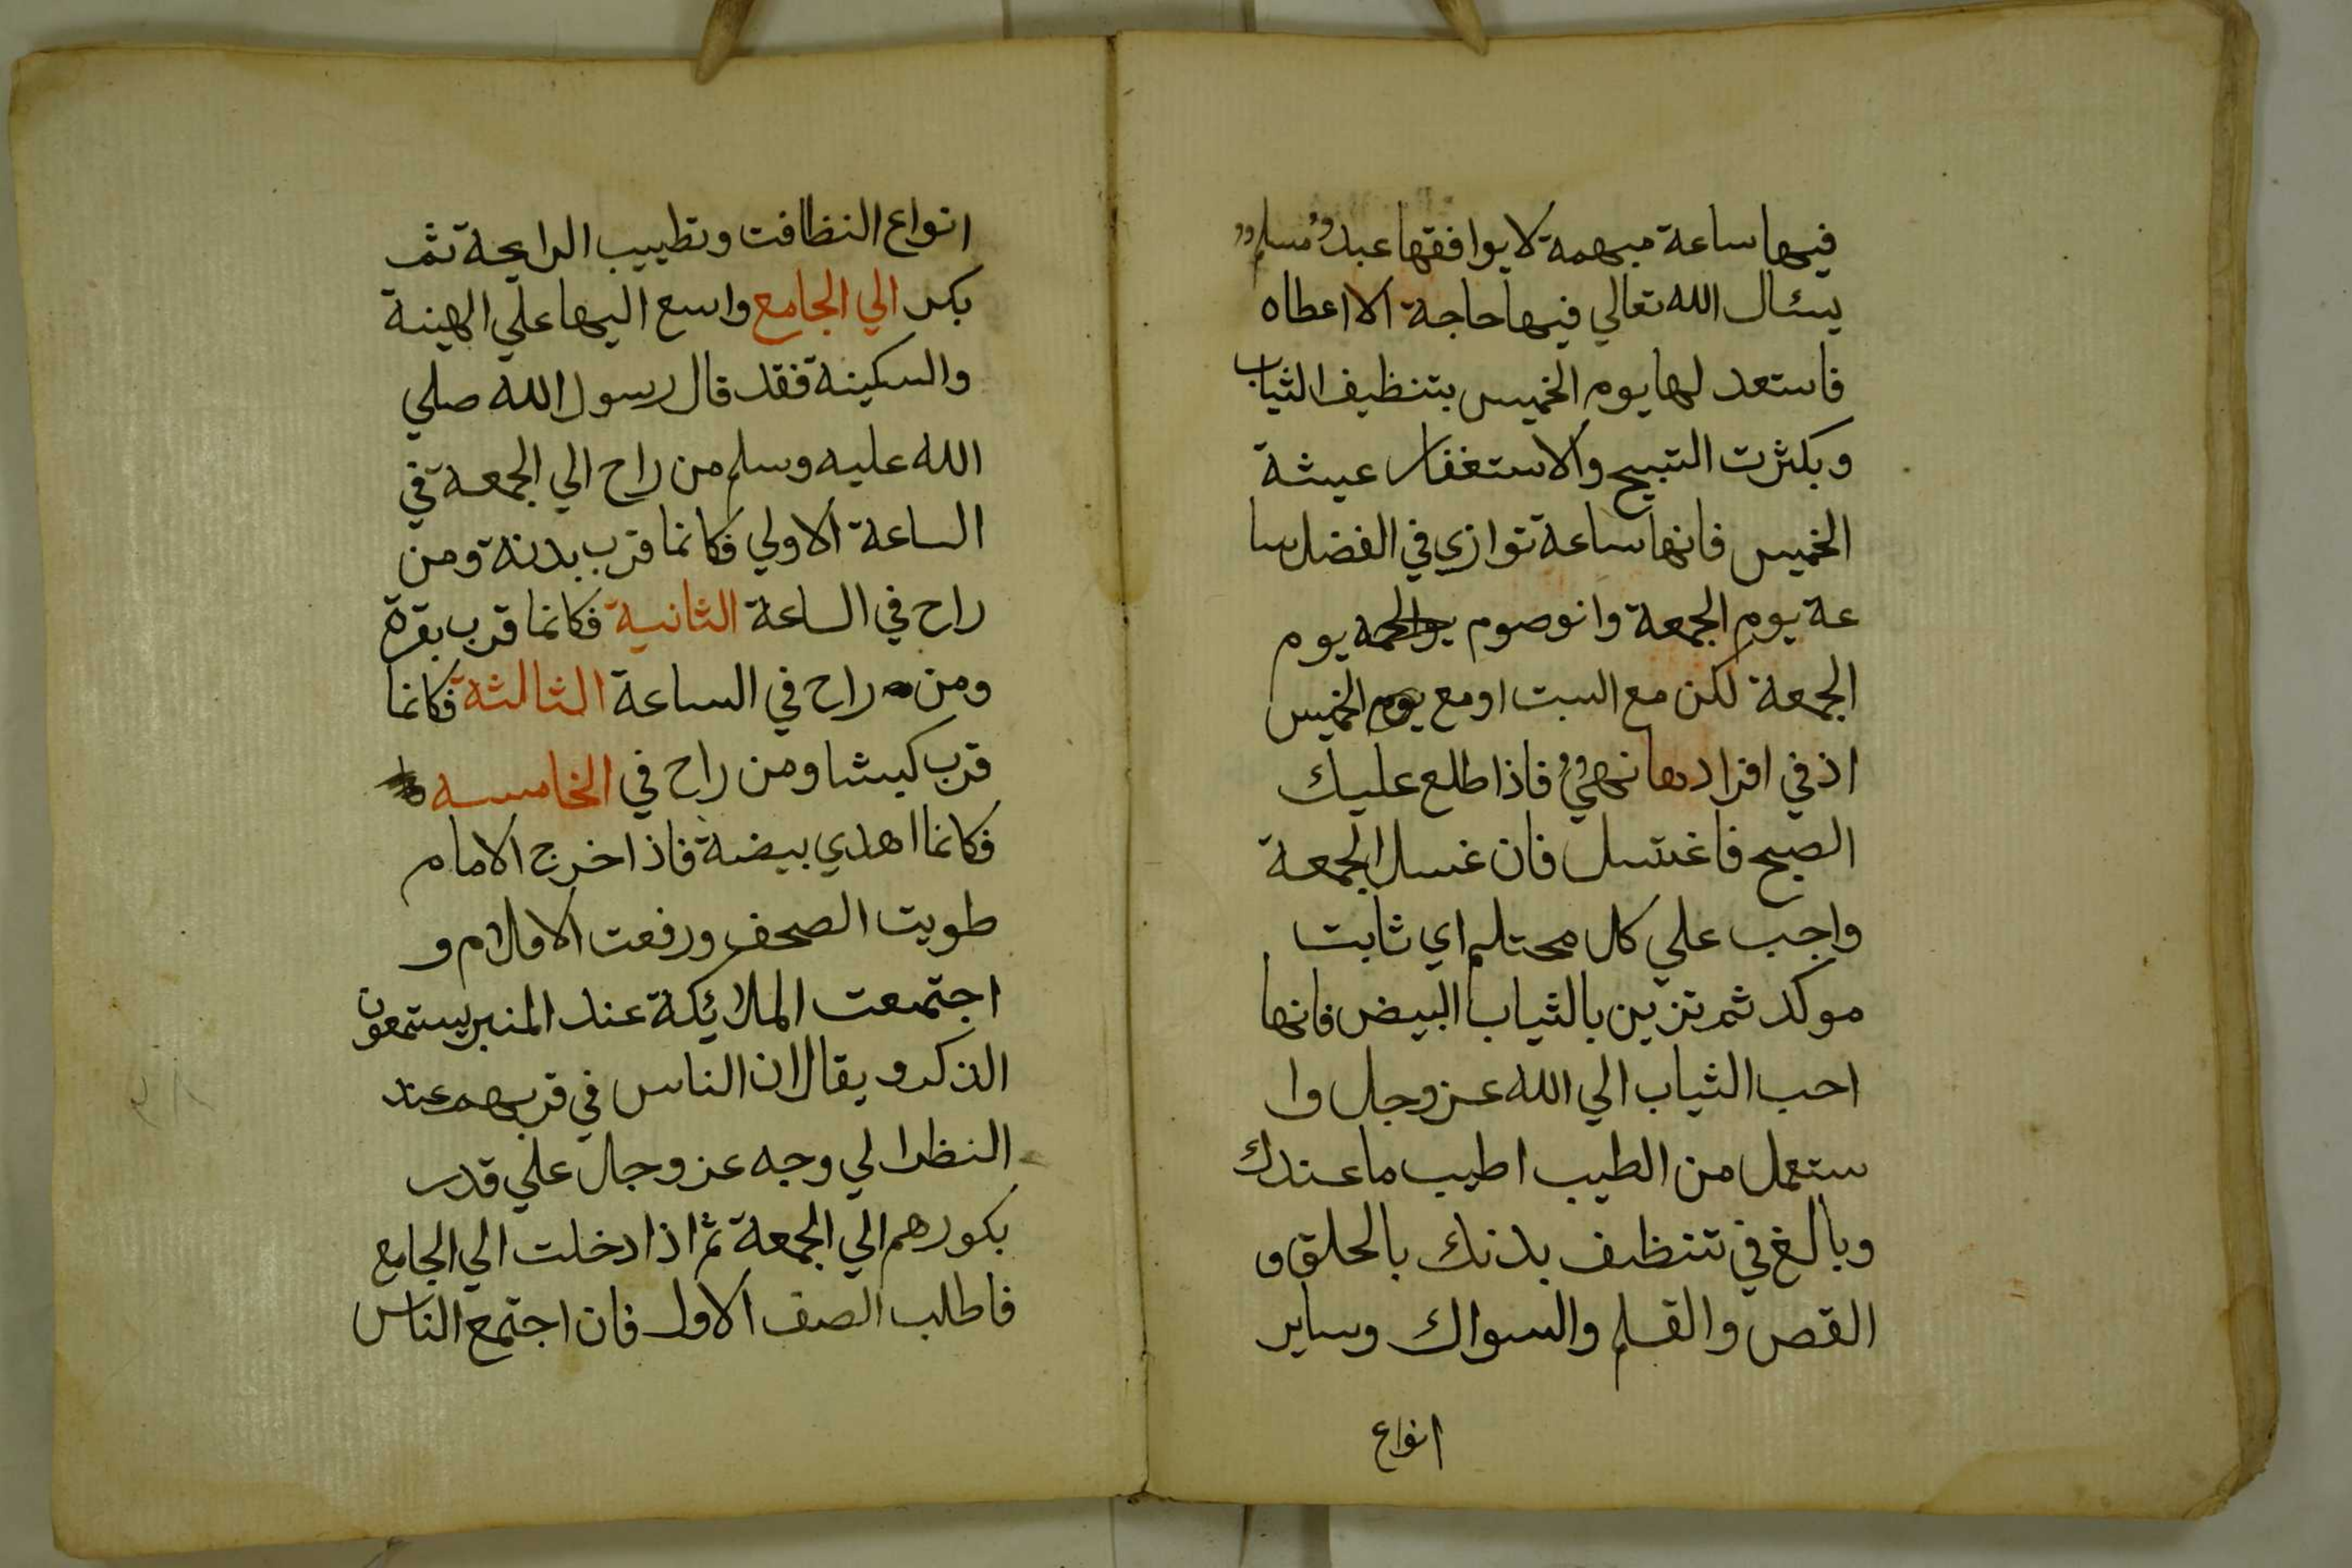 فيها ساعة مبهمة لا يوافقها عبد مسلم
يسئال الله تعالي فيها حاجة الا اعطاه
فاستعد لها يوم الخميس بتنظيف الثياب
وبكثرت التبيح والاستغفار عيشة
الخميس فانها ساعة توازي في الفضل سا
عة يوم الجمعة وانوصوم يوم
الجمعة لكن مع السبت او مع يوم الخميس
اذ في افرادها نهيٌ فاذا طلع عليك
الصبح فاغتسل فان غسل الجمعة
واجب علي كل محتلم اي ثابت
موكد ثم تزين بالثياب البيض فانها
احب الثياب الي الله عز وجل وا
ستعمل من الطيب اطيب ما عندك
وبالغ في تنظيف بدنك بالحلق و
القص والقلم والسواك وساير
انواع
انواع النظافت وتطييب الرايحة ثم
بكر الي الجامع واسع اليها علي الهينة
والسكينة فقد قال رسول الله صلي
الله عليه وسلم من راح الي الجمعة في
الساعة الاولي فكانما قرب بدنة ومن
راح في الساعة الثانية فكانما قرب بقرة
ومن راح في الساعة الثالثة فكانما
قرب كبشا ومن راح في الخامسه
فكانما اهدي بيضة فاذا خرج الامام
طويت الصحف ورفعت الاقلام و
اجتمعت الملائكة عند المنبر يستمعون
الذكر ويقال ان الناس في قربهم عند
النظر الي وجه عز وجال علي قدر
بكورهم الي الجمعة ثم اذا دخلت الي الجامع
فاطلب الصف الاول فان اجتمع الناس